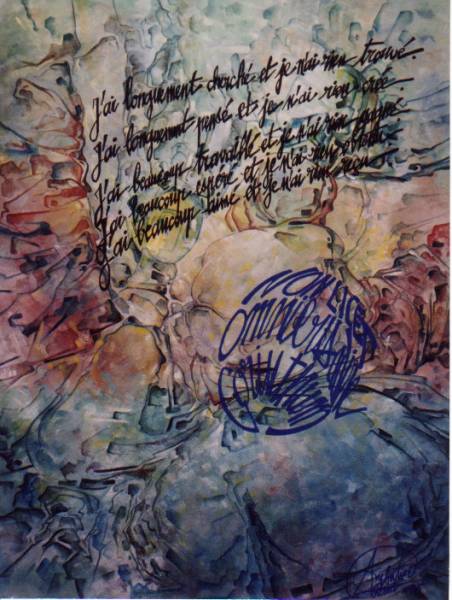 J'ai longuement cherché et je n'ai rien trouvé.
J'ai longuement pensé et je n'ai rien créé.
J'ai beaucoup travaillé et je n'ai rien gagné.
J'ai beaucoup espéré et je n'ai rien obtenu.
J'ai beaucoup aimé et je n'ai rien reçu.
NON LICET
OMNIBUS